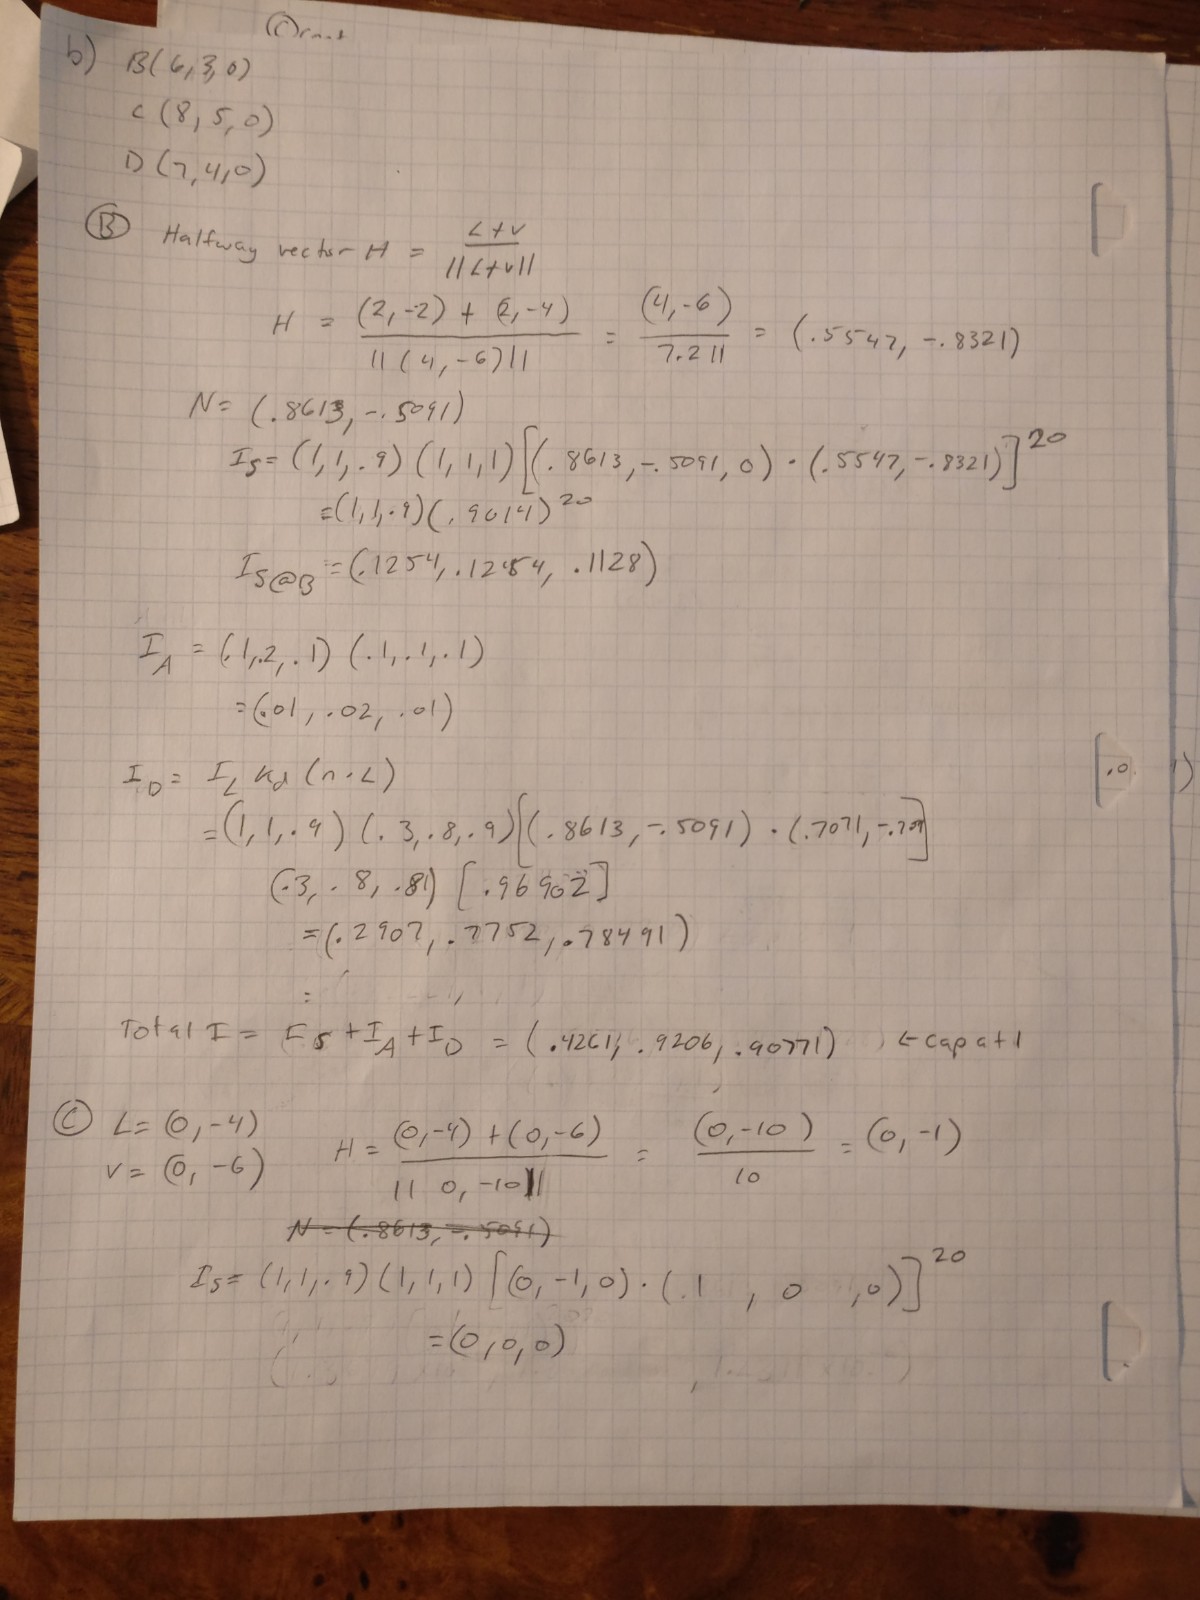 b) B(6,3,0)
C(8,5,0)
D(7,4,0)
Ⓑ Halfway vector H = L+v / ||L+v||
H = (2,-2) + (2,-4) / ||(4,-6)|| = (4,-6) / 7.211 = (.5547, -.8321)
N= (.8613, -.5091)
Is= (1,1,.9)(1,1,1)[(.8613,-.5091,0)·(.5547,-.8321)]^20
=(1,1,.9)(.9014)^20
I_S@B =(.1254,.1254,.1128)
I_A = (.1,.2,.1)(.1,.1,.1)
=(.01,.02,.01)
I_D= I_L kd (n·L)
=(1,1,.9)(.3,.8,.9)[(.8613,-.5091)·(.7071,-.7071)]
(.3,.8,.81)[.96902]
=(.2907,.7752,.78491)
:
Total I = I_S+I_A+I_D = (.4261,.9206,.90771) ← cap at 1
Ⓒ L= (0,-4)
v= (0,-6)
H= (0,-4)+(0,-6) / ||0,-10|| = (0,-10) / 10 = (0,-1)
N=(.8613,-.5091)
Is= (1,1,.9)(1,1,1)[(0,-1,0)·(.1,0,0)]^20
=(0,0,0)